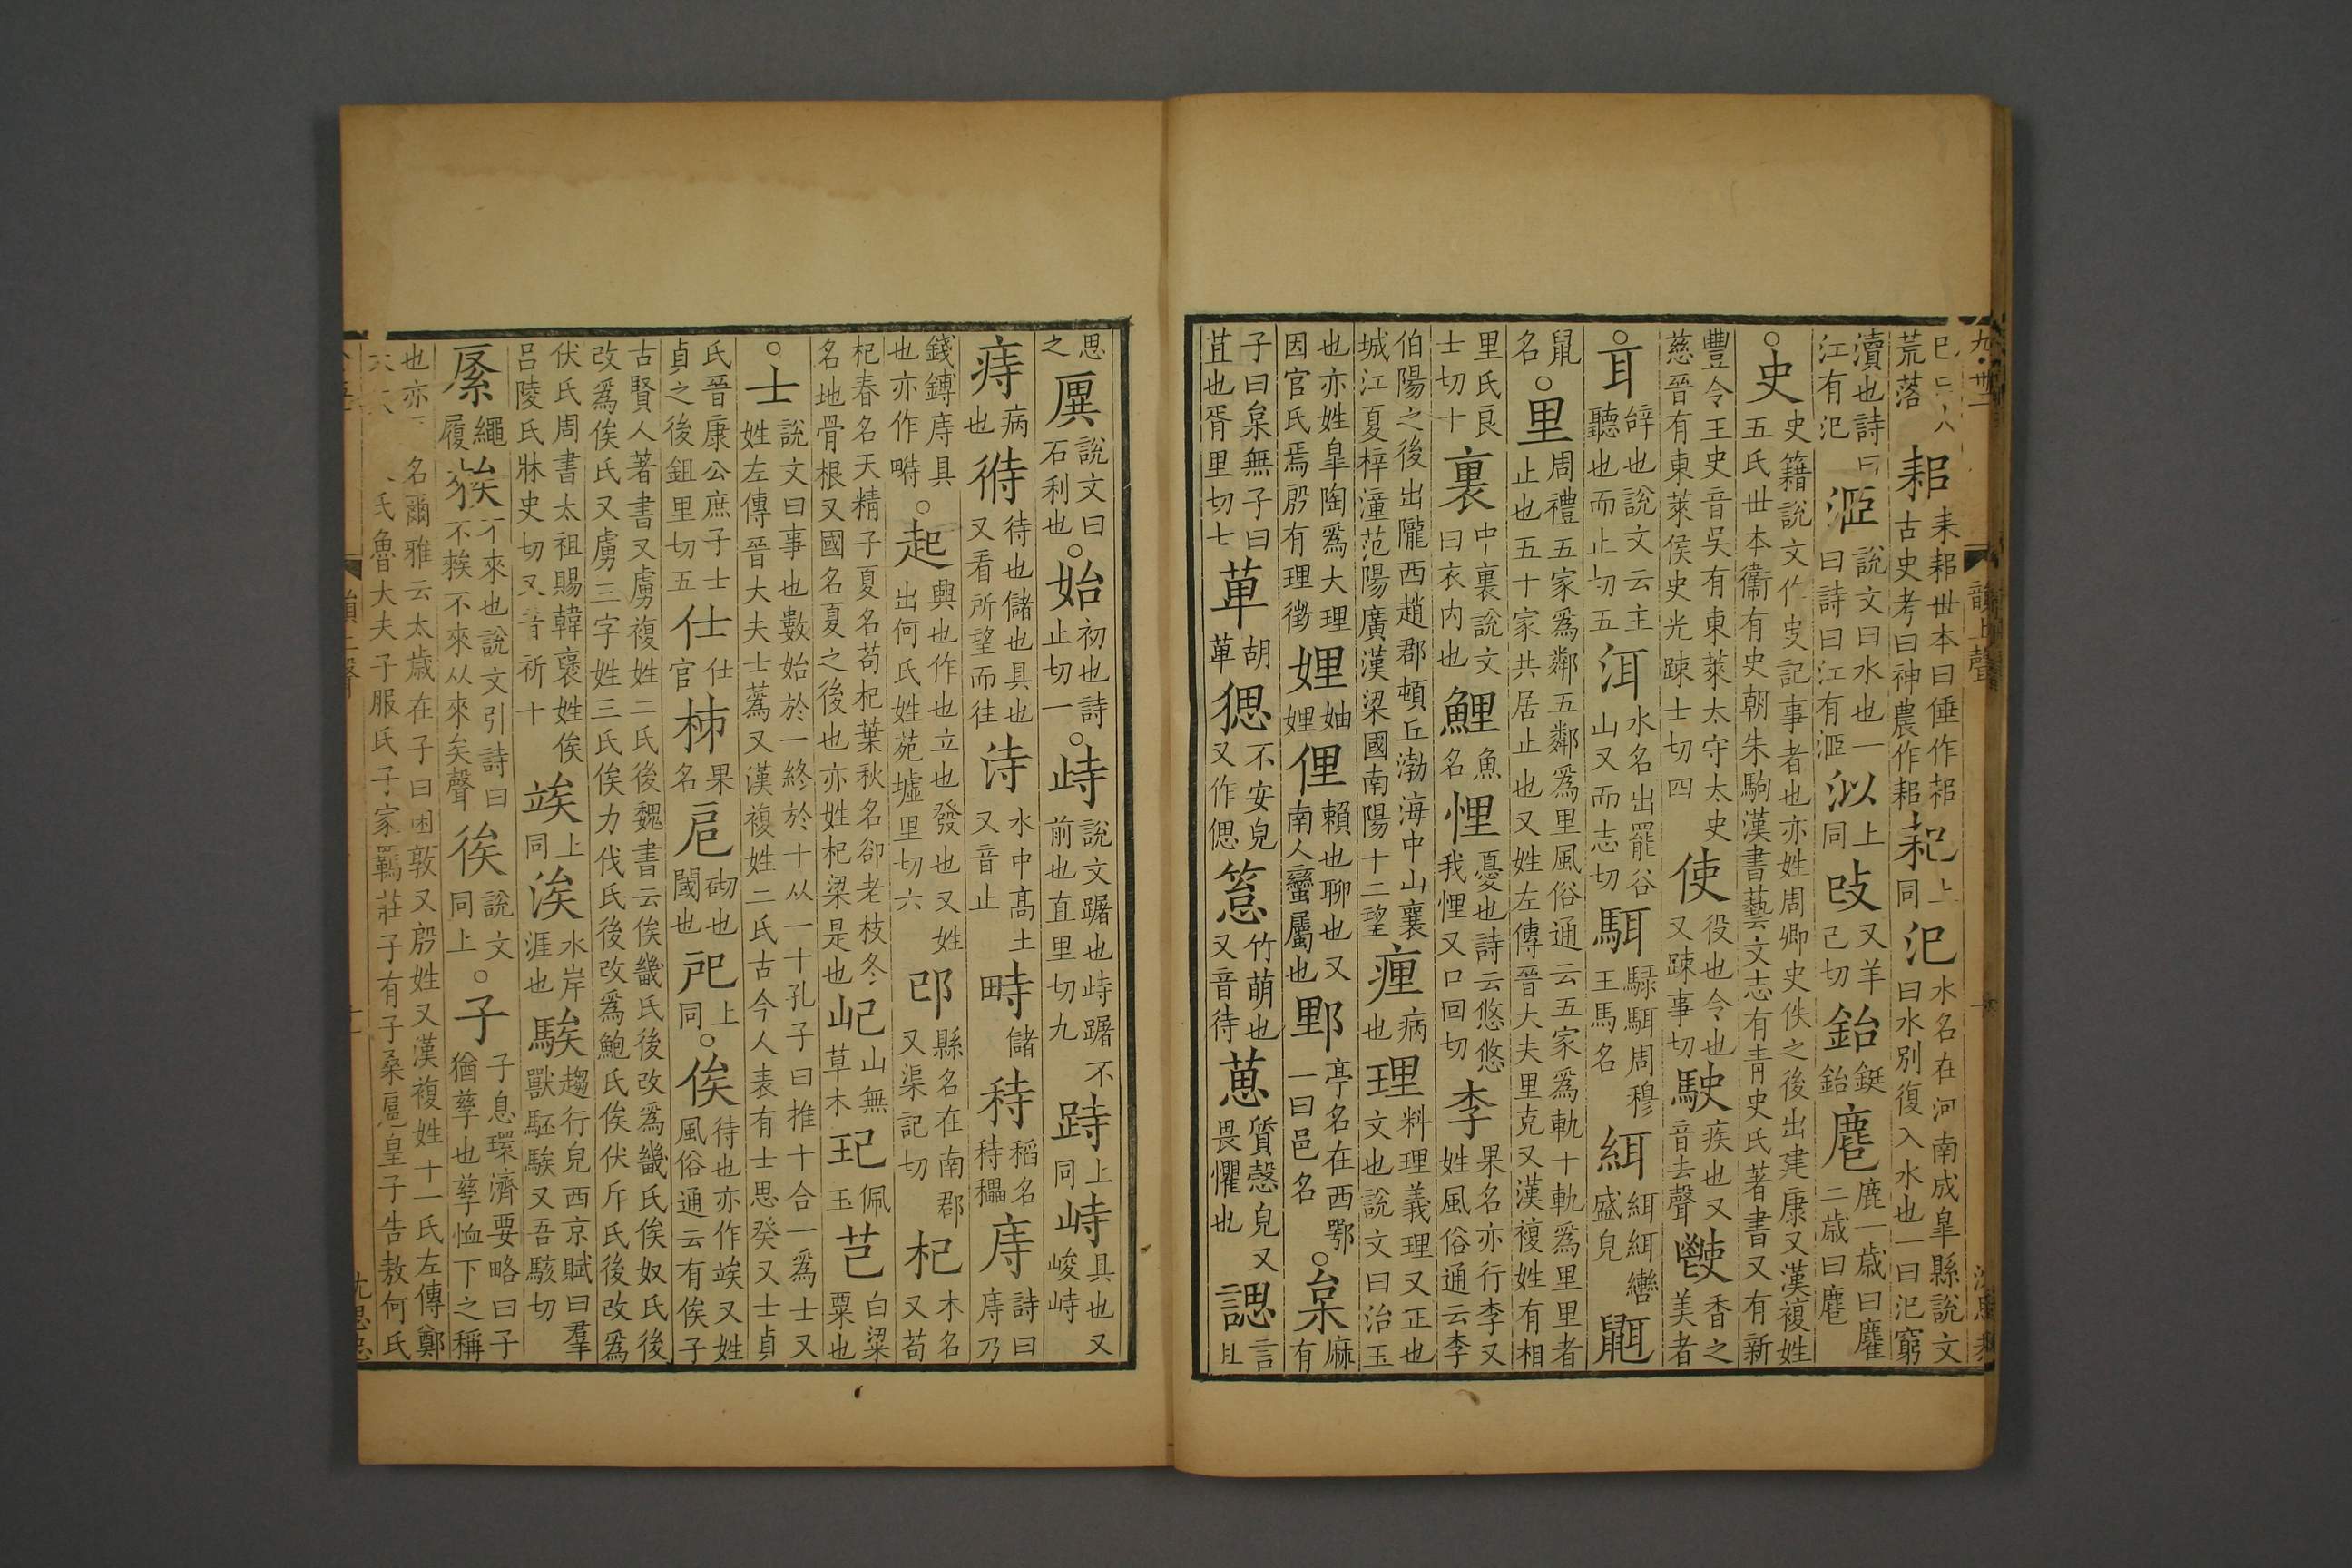 荒落 耜耒耜世本曰倕作耜古史考曰神農作耜𦓨上同 汜水名在河南成皐縣說文曰水別復入水也一曰汜窮
瀆也詩曰江有汜 洍說文曰水也一曰詩曰江有洍 㳃上同 攺又羊己切 鈶鋌鈶 䴥鹿一歳曰䴥二歳曰䴥
○史史籍說文作㕜記事者也亦姓周卿史佚之後出建康又漢複姓五氏世本衞有史朝朱駒漢書藝文志有青史氏著書又有新
豐令王史音吳有東萊太守太史慈晉有東萊侯史光踈士切四 使役也令也又踈事切 駛疾也又音去聲 䭽香之美者
○耳辝也說文云主聽也而止切五 洱水名出罷谷山又而志切 駬騄駬周穆王馬名 緷緷緷轡盛皃 𪕔
鼠名○里周禮五家爲鄰五鄰爲里風俗通云五家爲軌十軌爲里里者止也五十家共居止也又姓左傳晉大夫里克又漢複姓有相
里氏良士切十 裏中裏說文曰衣内也 鯉魚名 悝憂也詩云悠悠我悝又口回切 李果名亦行李又姓風俗通云李
伯陽之後出隴西趙郡頓丘渤海中山襄城江夏梓潼范陽廣漢梁國南陽十二望 𤹈病也 理料理義理又正也文也說文曰治玉
也亦姓皐陶爲大理因官氏焉殷有理徵 娌妯娌 俚賴也聊也又南人蠻屬也 𨛋亭名在西鄂一曰邑名 ○枲麻有
子曰枲無子曰苴也胥里切七 葈胡葈 𤟧不安皃又作偲 䈢竹萌也又音待 葸質愨皃又畏懼也 諰言且
思之 㕒說文曰石利也 ○始初也詩止切一 ○歭說文踞也歭踞不前也直里切九 跱上同 峙具也又峻峙
痔病也 偫待也儲也具也又看所望而往 洔水中高土又音止 畤儲 秲稻名秲穲 庤詩曰庤乃
錢鎛庤具也亦作畤 ○起興也作也立也發也又姓出何氏姓苑墟里切六 邔縣名在南郡又渠記切 杞木名又苟
杞春名天精子夏名苟杞葉秋名卻老枝冬名地骨根又國名夏之後也亦姓杞梁是也 屺山無草木 玘佩玉 芑白粱粟也
○士說文曰事也數始於一終於十从一十孔子曰推十合一爲士又姓左傳晉大夫士蒍又漢複姓二氏古今人表有士思癸又士貞
氏晉康公庶子士貞之後鉏里切五 仕仕官 柹果名 戺砌也閾也 𢨪上同 ○俟待也亦作竢又姓風俗通云有俟子
古賢人著書又虜複姓二氏後魏書云俟畿氏後改爲畿氏俟奴氏後改爲俟氏又虜三字姓三氏俟力伐氏後改爲鮑氏俟伏斤氏後改爲
伏氏周書太祖賜韓褒姓俟呂陵氏牀史切又音祈十 竢上同 涘水岸涯也 騃趨行皃西京賦曰羣獸駓騃又吾駭切
綮繩履 䅪不來也說文引詩曰不䅪不來从來矣聲 㣟說文同上 ○子子息環濟要略曰子猶孳也孳恤下之稱
也亦 名爾雅云太歳在子曰困敦又殷姓又漢複姓十一氏左傳鄭 氏魯大夫子服氏子家羈莊子有子桑扈皇子告敖何氏